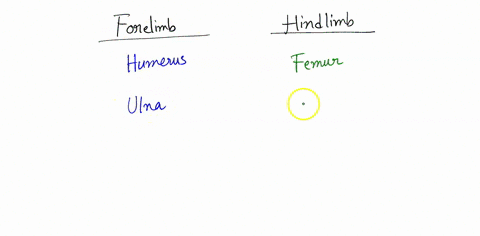 Forelimb Hindlimb
Humerus Femur
Ulna